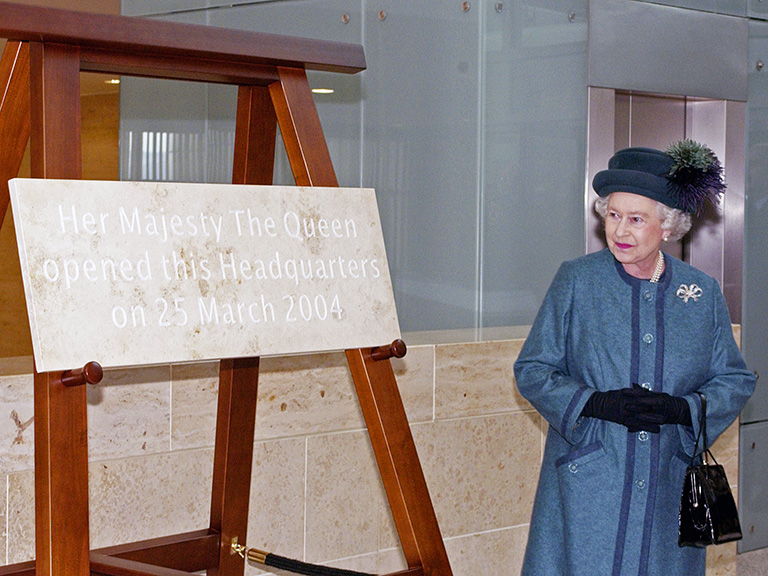 Her Majesty The Queen
opened this Headquarters
on 25 March 2004